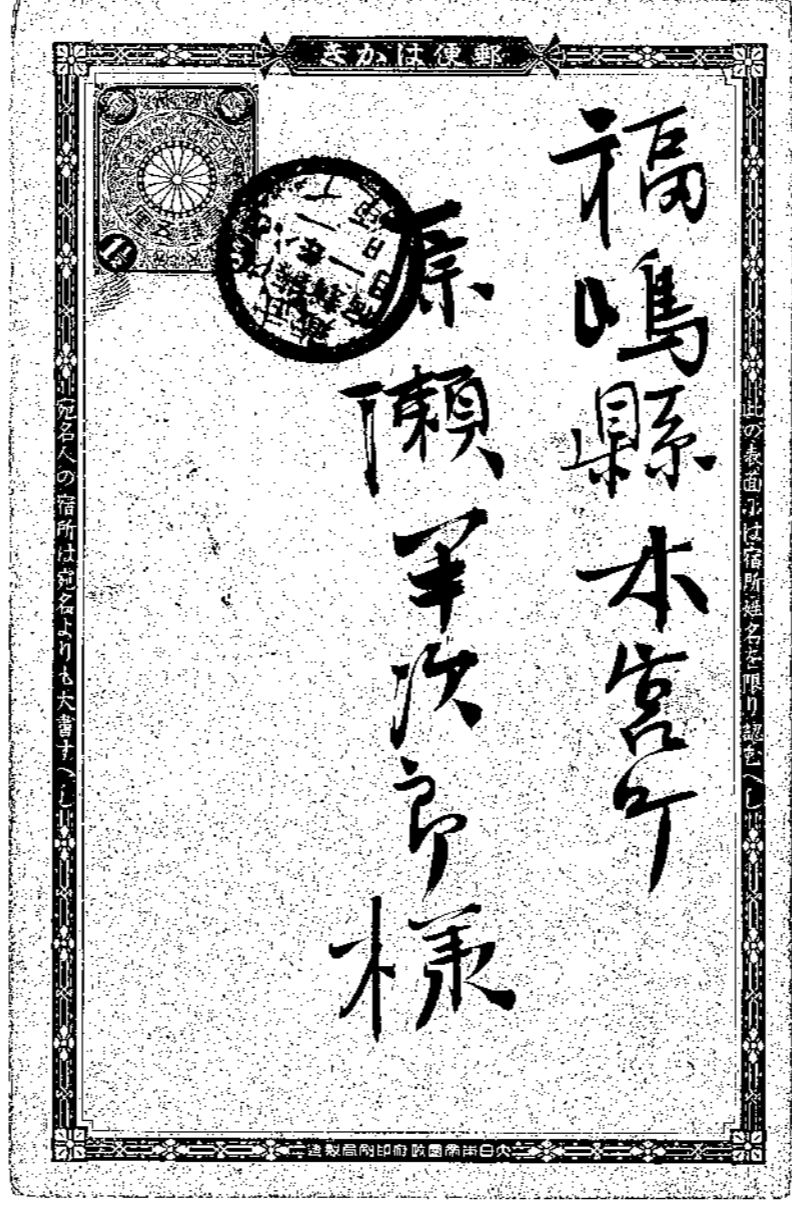 郵便はかき
此の表面には宿所姓名を限り認むへし
福嶋縣本宮町
原瀬半次郎様
宛名人の宿所は宛名よりも大書すへし
大日本帝國政府印刷局製造